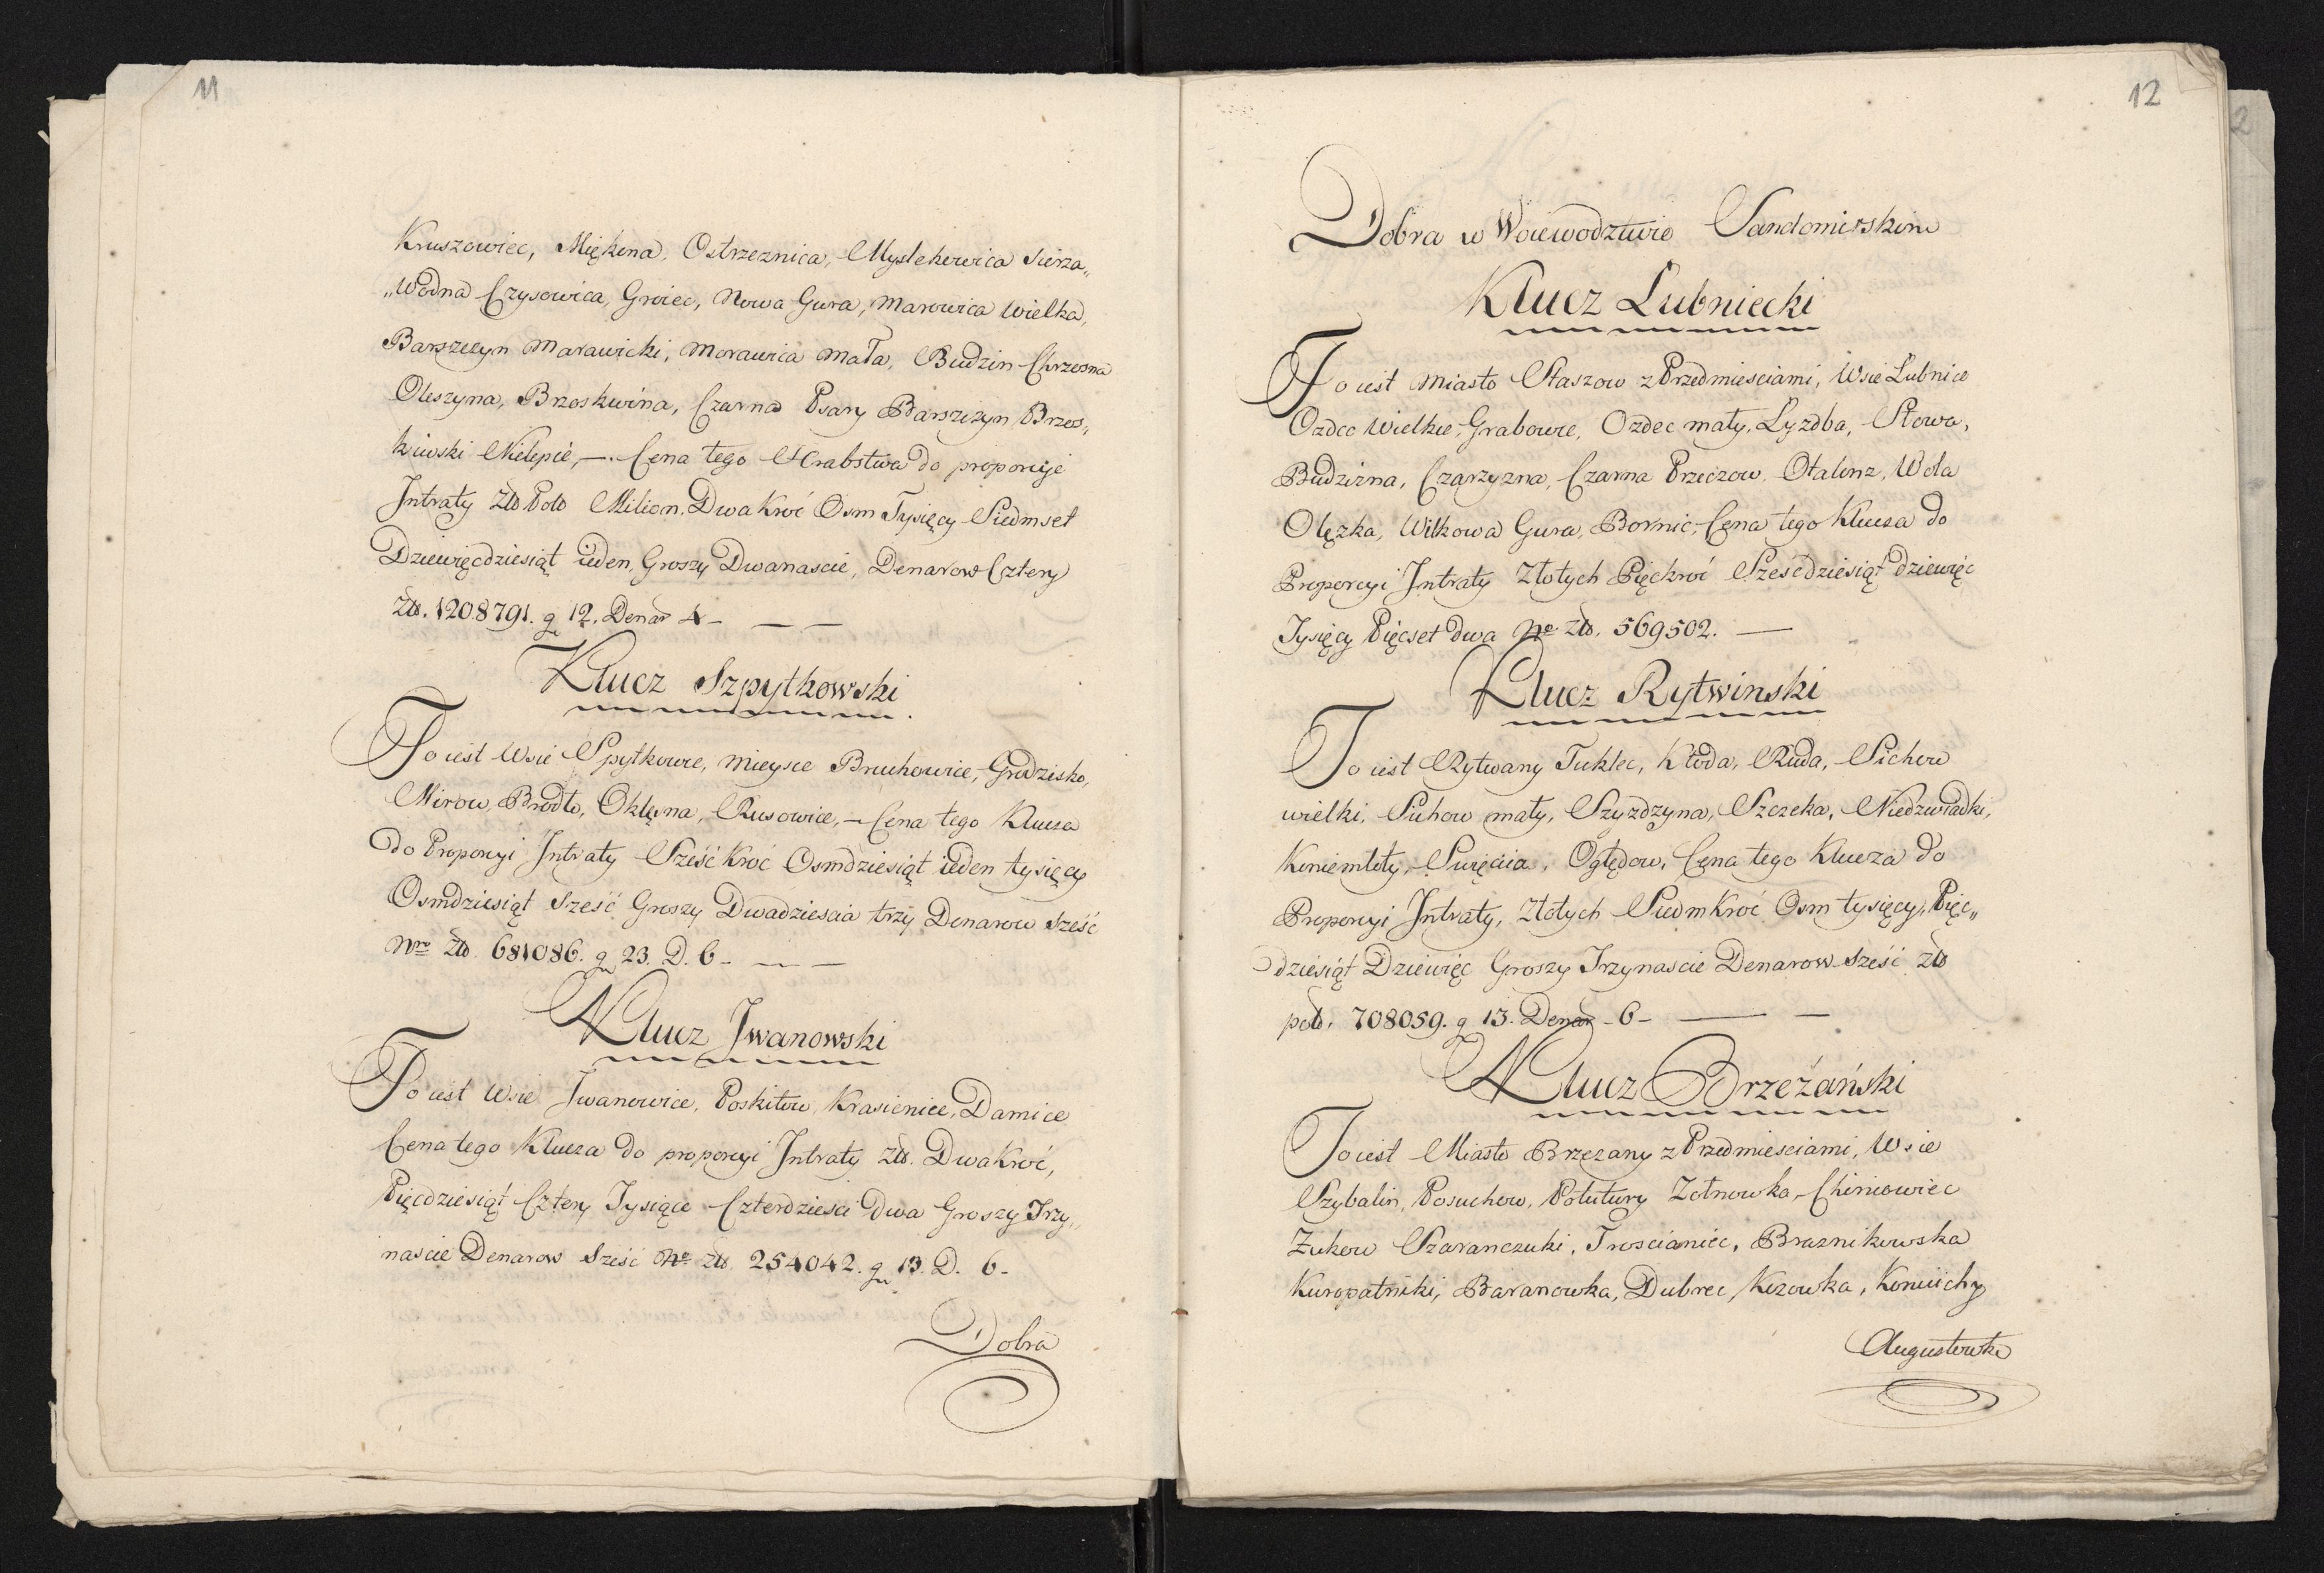 11
Kruszowiec, Miękina, Ostrzeznica, Myslehowica Sierza„
„Wodna Czysowica, Groiec, Nowa Gura, Marowica Wielka,
Barszczyn Marawicki, Morawica Mała, Budzin Chrzosna
Oleszyna, Brzoskwina, Czarna Psary Barszczyn Brzos„
kiwski Nielepie, —. Cena tego Hrabstwa do proporcyi
Intraty Zło Polo Milion, Dwakroć Osm Tysięcy Siedmset
Dziewięcdziesiąt ieden, Groszy Dwanascie, Denarow Cztery
Zło. 1208791. g 12. Denar 4 — — —
Klucz Szpytkowski
To iest Wsie Spytkowce, Mieysce Bruhowice, Grodzisko,
Mirow, Brodło, Oklęsna, Rusowice, — Cena tego Klucza
do Proporcyi Intraty Sześć Kroć Osmdziesiąt ieden tysięcy
Osmdziesiąt Sześć Groszy Dwadziescia trzy Denarow Sześć
Nro Zło. 681086. g 23. D. 6 — — —
Klucz Jwanowski
To iest Wsie Jwanowice, Poskitow, Krasienice, Damice
Cena tego Klucza do proporcyi Intraty Zło. Dwakroć,
Pięcdziesiąt Cztery Tysiące Czterdziesci Dwa Groszy Trzy„
nascie Denarow Sześć No Zło. 254042. g 13. D. 6 —
Dobra
12
Dobra w Woiewodztwie Sandomirskim
Klucz Lubniecki
To iest Miasto Staszow z Przedmiesciami, Wsie Lubnice
Ozdec Wielkie, Grabowce, Ozdec mały, Lyzdba, Słowa,
Budzizna, Czarzyzna, Czarna Przeczow, Otalenz, Wola
Olęzka, Wilkowa Gura, Bornic, Cena tego Klucza do
Proporcyi Intraty Złotych Pięckroć Sześćdziesiąt dziewięc
Tysięcy Pięcset dwa No Zło. 569502. —
Klucz Rytwinski
To iest Rytwany Tuklec, Kłoda, Ruda, Sichow
wielki, Sichow mały, Szyzdzyna, Szczeka, Niedzwiadki,
Koniemłoty, Swięcia, Oględow, Cena tego Klucza do
Proporcyi Intraty, Złotych Siedmkroć Osm tysięcy, Pięc„
dziesiąt Dziewięc Groszy Trzynascie Denarow Sześć Zło
polo. 708059. g 13. Denar — 6 — — —
Klucz Brzeżański
To iest Miasto Brzezany z Przedmiesciami, Wsie
Szybalin, Posuchow, Potutury Zotnowka, Chiniowiec
Zukow Szaranczuki, Troscianiec, Braznikowska
Kuropatniki, Baranowka, Dubrec, Kozowka, Koniuchy
Augustowka